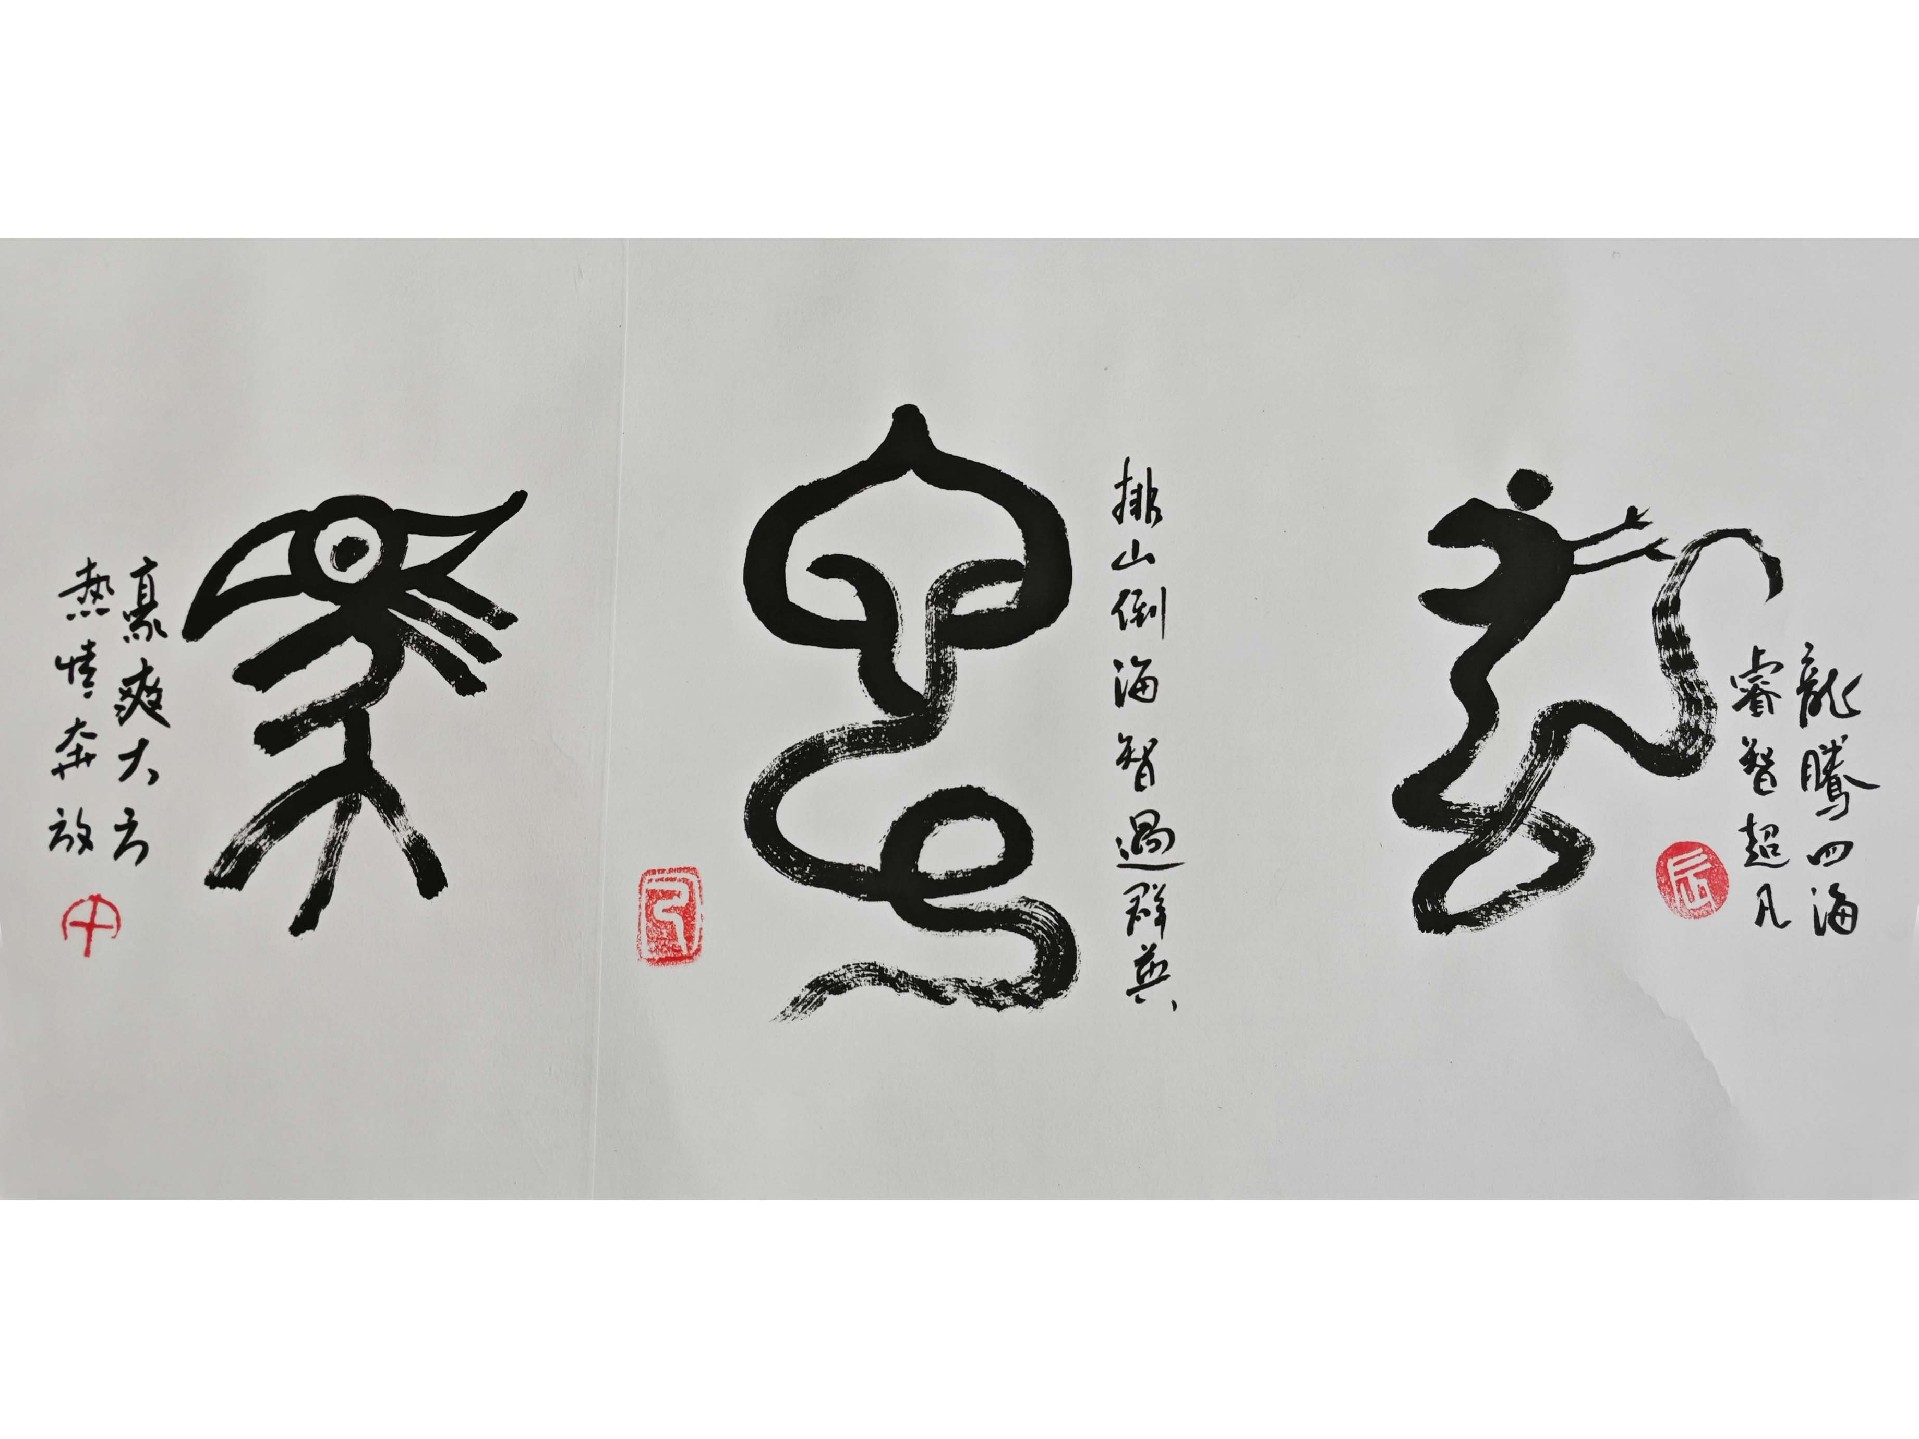 龍騰四海
睿智超凡
辰
排山倒海智過群英
巳
豪爽大方
熱情奔放